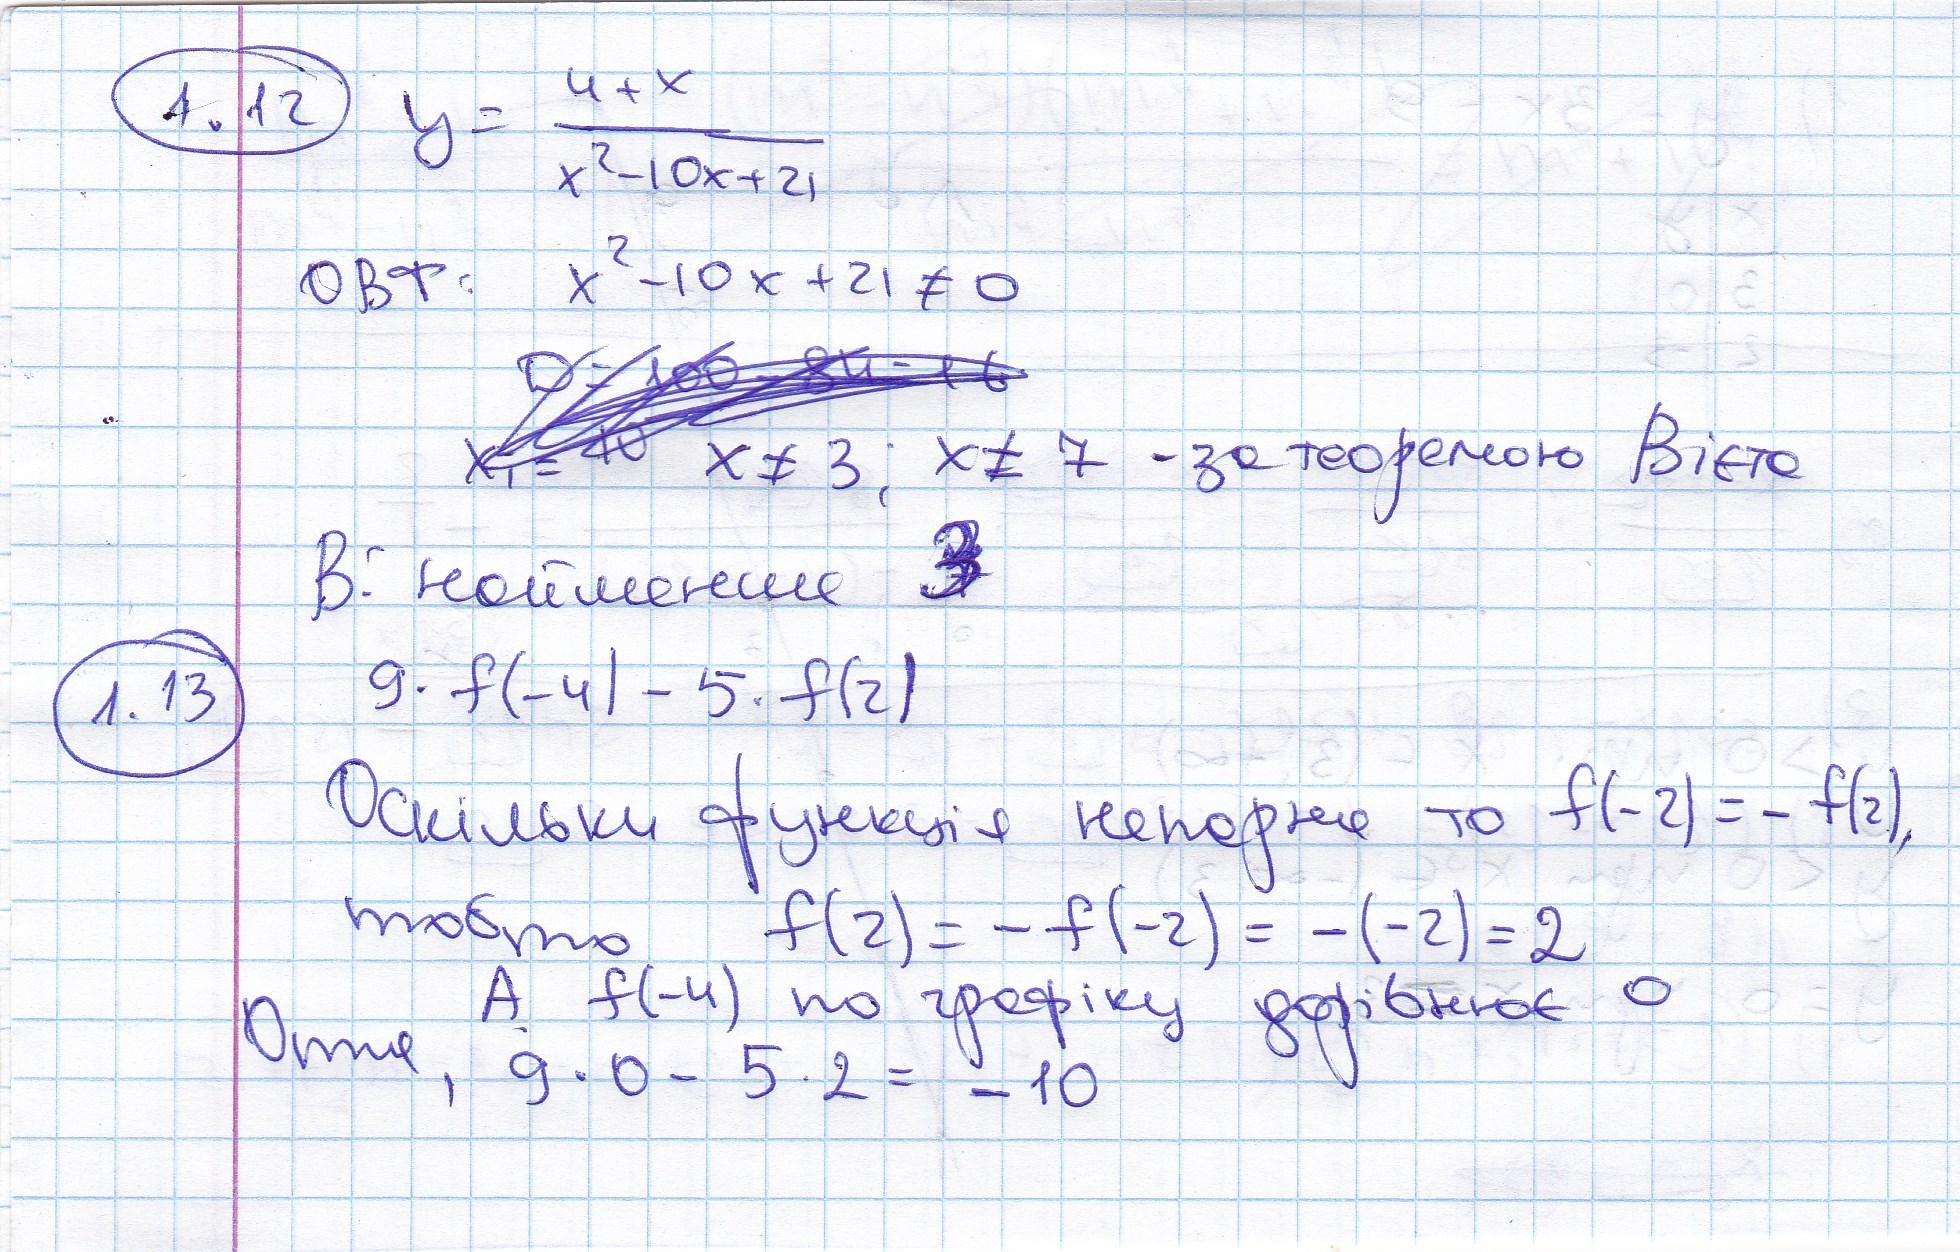 1.12 y = 4+x / x²-10x+21
ОВФ: x²-10x+21≠0
D = 100 - 84 = 16
x₁ = 10 x≠3; x≠7 - за теоремою Вієта
В: найменше 3
1.13 9·f(-4)-5·f(2)
Оскільки функція непарна то f(-2)=-f(2),
тобто f(2)=-f(-2)=-(-2)=2
А f(-4) по графіку дорівнює 0
Отже, 9·0-5·2=-10